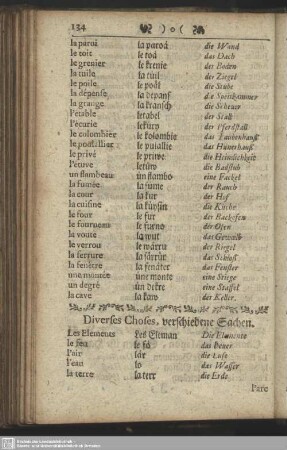 134 ) o (
la paroi la paroä die Wand
le toit le toä das Dach
le grenier le krenie der Boden
la tuile la tuil der Ziegel
le poile le poäl die Stube
la dépense la depans die Speiskammer
la grange la kransch die Scheuer
l'étable letabel der Stall
l'écurie leküry der Pferdstall
le colombier le kolombie das Taubenhauß
le poulallier le pulallie das Hünerhauß
le privé le priwe die Heimlichkeit
l'étuve letüw die Badstub
un flambeau un flambo eine Fackel
la fumée la fume der Rauch
la cour la kur der Hof
la cuisine la küsin die Küche
le four le fur der Backofen
le fourneau le furno der Ofen
la voute la wut das Gewölb
le verrou le wärru der Riegel
la serrure la särrür das Schloß
la fenêtre la fenäter das Fenster
une montée une monte eine Stiege
un degré un dekre eine Staffel
la cave la kaw der Keller.
Diverses Choses, verschiedene Sachen.
Les Elemens Les Eleman Die Elemente
le feu le fö das Feuer
l'air lär die Luft
l'eau lo das Wasser
la terre la terr die Erde